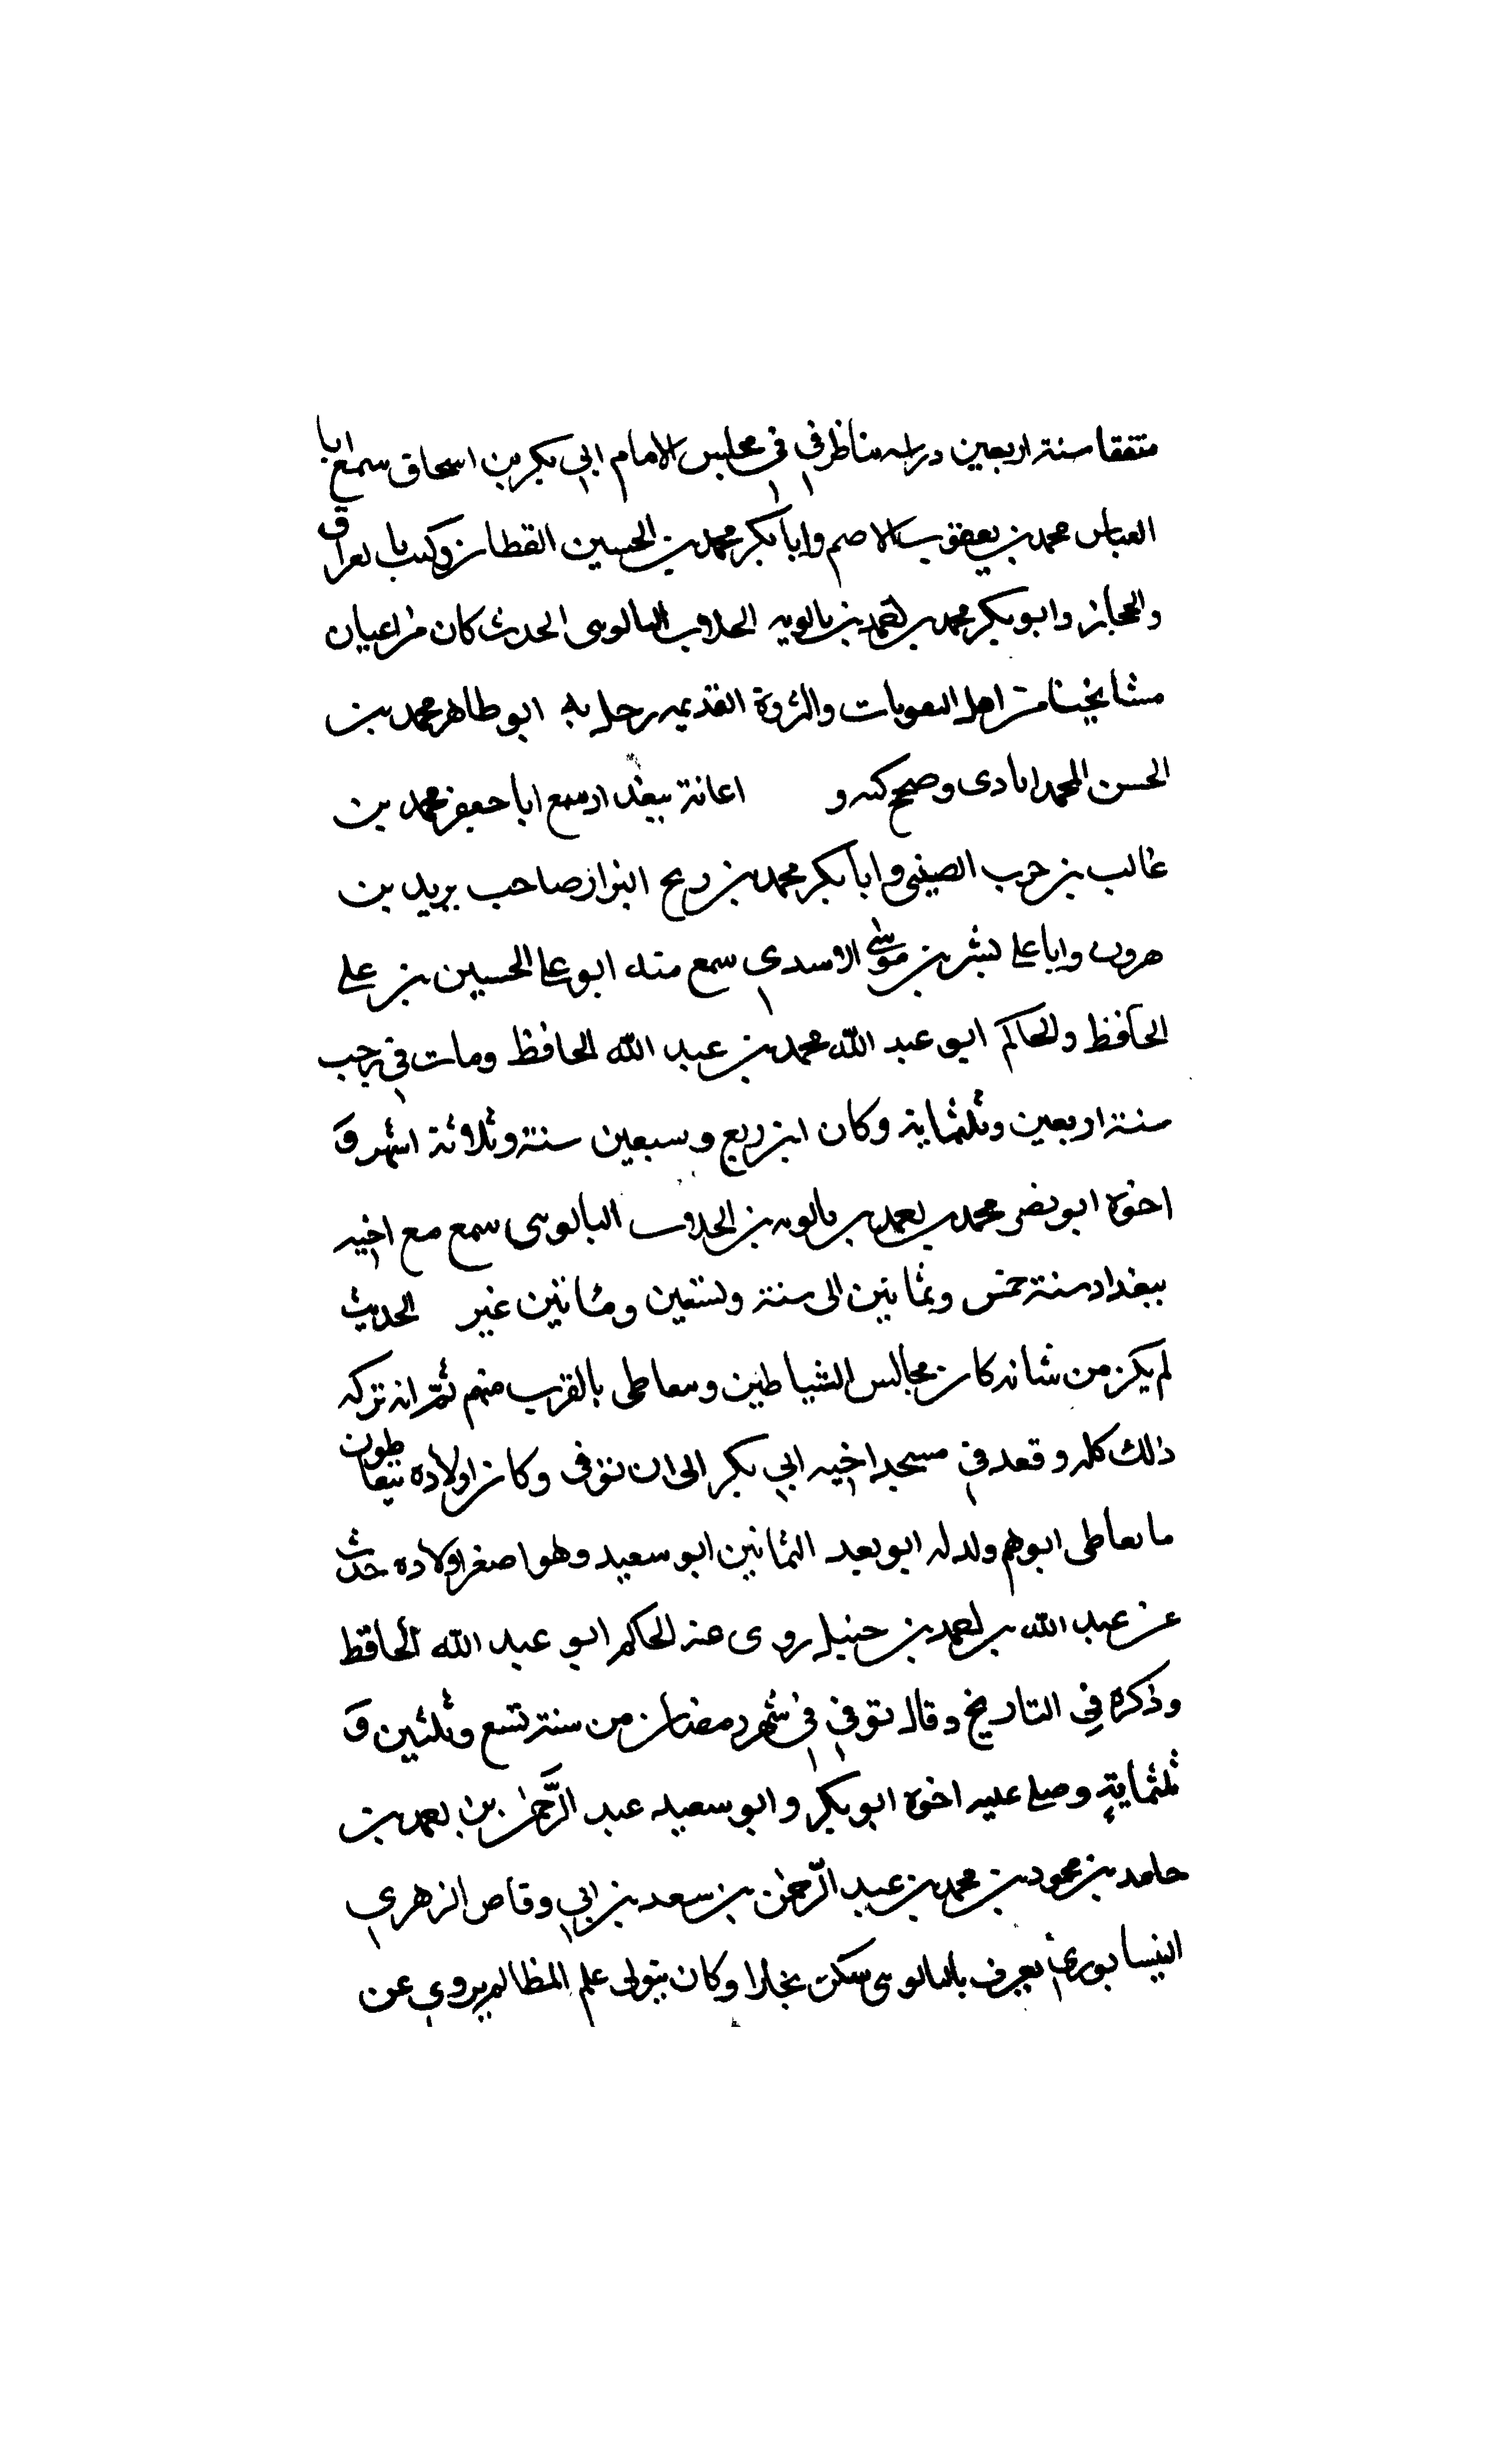 متفقا سنة اربعين ورايته يناظر في في مجلس الامام ابي بكر بن اسحاق سمع ابا
العباس محمد بن يعقوب الاصم وابا بكر محمد بن الحسين القطان وكتب بالعراق
والحجاز وابو بكر محمد بن احمد بن بالويه الجلاب البالوي الحدث كان من اعيان
مشايخنا من اهل البيوتات والثروة القديمه رحل به ابو طاهر محمد بن
الحسن المحمدابادي وصحح كتبه و اعانة ببغداد سمع ابا جعفر محمد بن
غالب بن حرب الضبي وابا بكر محمد بن ربح البزاز صاحب يزيد بن
هرون وابا علي بشر بن موسى الاسدي سمع منه ابو علي الحسين بن علي
الحافظ والحاكم ابو عبد الله محمد بن عبد الله الحافظ ومات في رجب
سنة اربعين وثلثماية وكان ابن ربع وسبعين سنة وثلاثة اشهر و
اخوه ابو نصر محمد بن احمد بن بالويه بن الجلاب البالوي سمع مع اخيه
ببغداد سنة خمس وثمانين الى سنة وتسعين ومائتين غير الحديث
لم يكن من شانه كان مجالس الشياطين وتعاطى بالقرب منهم ثم انه ترك
ذلك كله وقعد في مسجد اخيه ابي بكر الى ان توفي وكان اولاده يتعاطون
ما تعاطى ابوهم ولد له ابو بعد الثمانين ابو سعيد وهو اصغر اولاده حدث
عن عبد الله بن احمد بن حنبل روى عنه الحاكم ابو عبد الله الحافظ
وذكره في التاريخ وقال توفي في شهر رمضان من سنة تسع وثلثين و
ثلثماية وصلى عليه اخوه ابو بكر وابو سعيد عبد الرحمن بن احمد بن
حامد بن محمود بن محمد بن عبد الرحمن بن سعد بن ابي وقاص الزهري
النيسابوري يعرف بالبالوي سكن بخارا وكان يتولى علم المظالم يروي عن